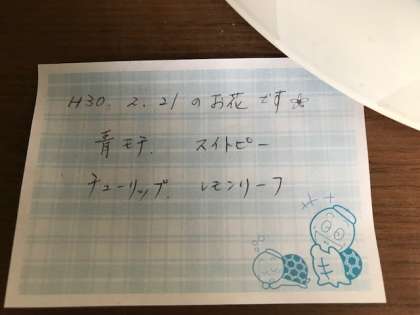 H30.2.21のお花です
青モテ. スイトピー
チューリップ. レモンリーフ